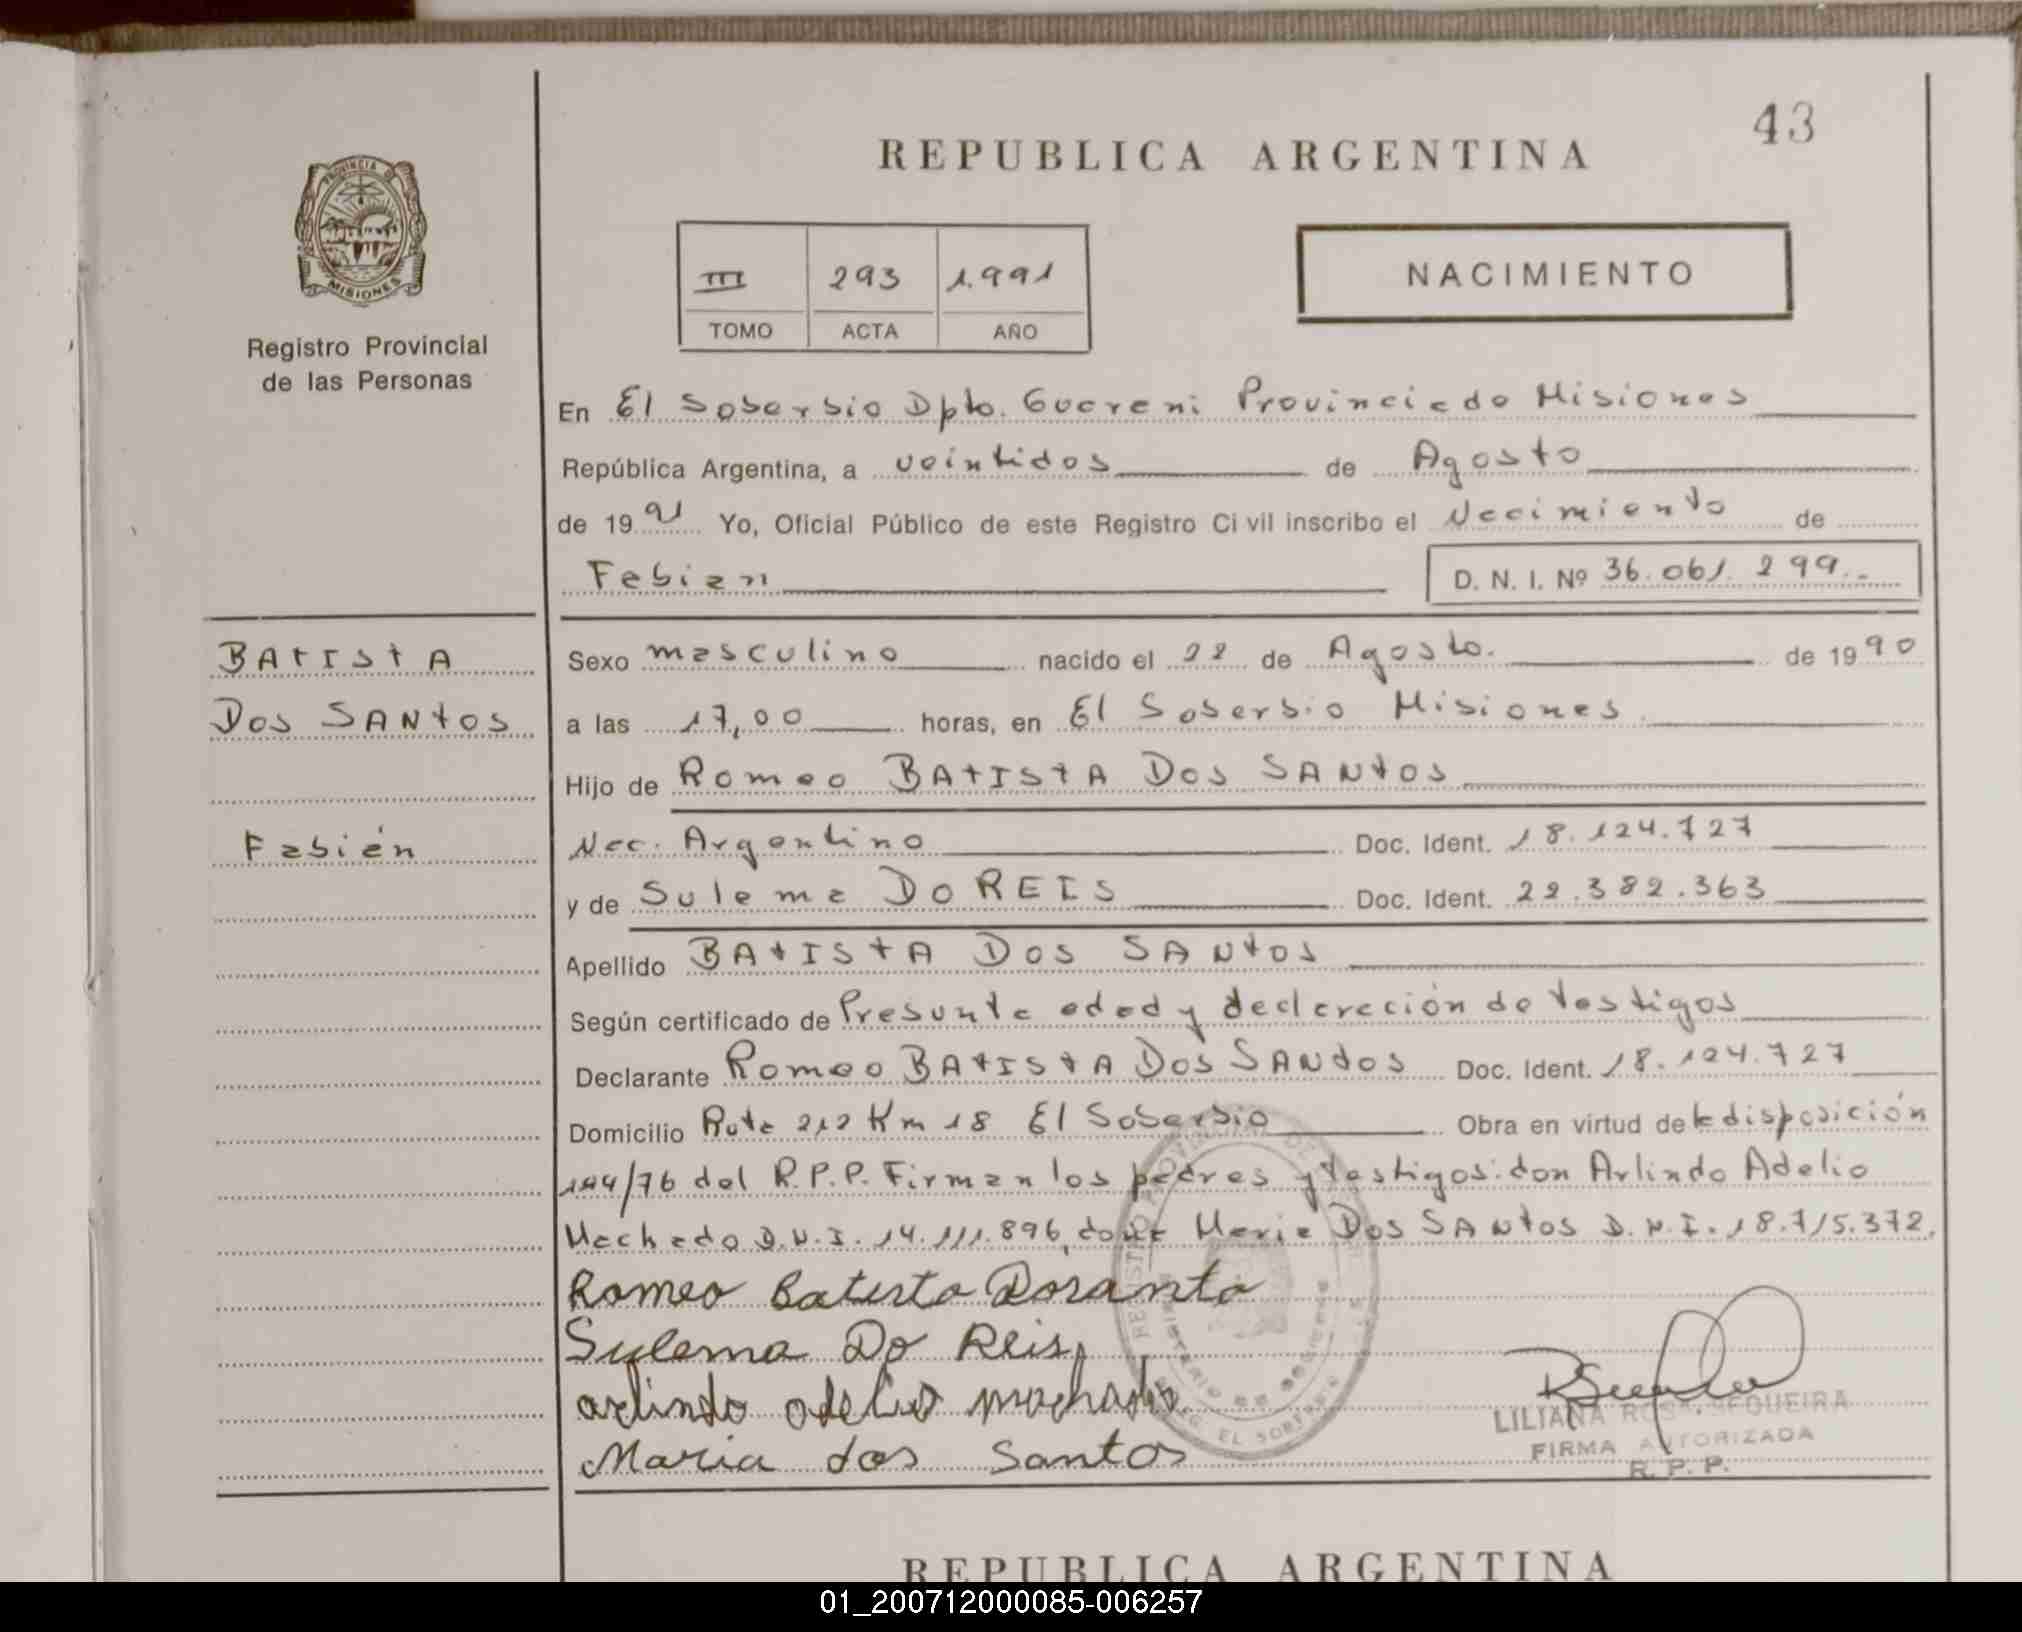 43
REPUBLICA ARGENTINA
PROVINCIA DE
MISIONES
Registro Provincial
de las Personas
III 293 1.991
TOMO ACTA AÑO
NACIMIENTO
En El Soberbio Dpto. Guarani Provincia de Misiones
República Argentina, a veintidos de Agosto
de 1991 Yo, Oficial Público de este Registro Ci vil inscribo el Nacimiento de
Fabian D. N. I. Nº 36.061.299.-
BATISTA
DOS SANTOS
Fabián
Sexo masculino nacido el 22 de Agosto. de 1990
a las 17,00 horas, en El Soberbio Misiones
Hijo de Romeo BATISTA DOS SANTOS
Nac. Argentino Doc. Ident. 18.124.727
y de Sulema DO REIS Doc. Ident. 22.382.363
Apellido BATISTA DOS SANTOS
Según certificado de Presunta edad y declaración de testigos
Declarante Romeo BATISTA DOS SANTOS Doc. Ident. 18.124.727
Domicilio Ruta 212 Km 18 El Soberbio Obra en virtud de la disposición
194/76 del R.P.P. Firman los padres y testigos: don Arlindo Adelio
Machado D.N.I. 14.111.896, doña Maria DOS SANTOS D.N.I. 18.715.372.
Romeo Batista Dosanto
Sulema Do Reis
arlindo adelio machado
Maria dos Santos
LILIANA ROSA SEQUEIRA
FIRMA AUTORIZADA
R. P. P.
REPUBLICA ARGENTINA
01_200712000085-006257